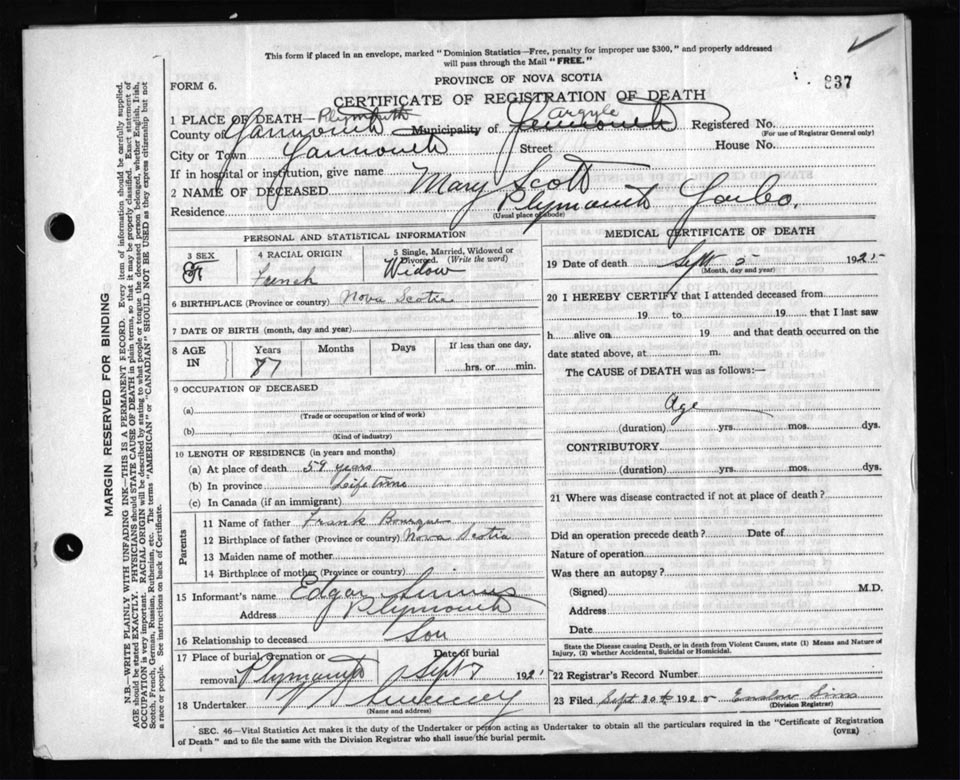 This form if placed in an envelope, marked "Dominion Statistics—Free, penalty for improper use $300," and properly addressed
will pass through the Mail "FREE."
PROVINCE OF NOVA SCOTIA
837
FORM 6.
CERTIFICATE OF REGISTRATION OF DEATH
1 PLACE OF DEATH— Plymouth
Argyle
County of Yarmouth Municipality of Yarmouth Registered No.
(For use of Registrar General only)
City or Town Yarmouth Street House No.
If in hospital or institution, give name
2 NAME OF DECEASED Mary Scott
Residence Plymouth Yar Co.
(Usual place of abode)
PERSONAL AND STATISTICAL INFORMATION
3 SEX 4 RACIAL ORIGIN 5 Single, Married, Widowed or
Divorced. (Write the word)
F French Widow
6 BIRTHPLACE (Province or country) Nova Scotia
7 DATE OF BIRTH (month, day and year)
8 AGE IN Years Months Days If less than one day,
87 hrs. or min.
9 OCCUPATION OF DECEASED
(a)
(Trade or occupation or kind of work)
(b)
(Kind of industry)
10 LENGTH OF RESIDENCE (in years and months)
(a) At place of death 59 years
(b) In province Life time
(c) In Canada (if an immigrant)
Parents
11 Name of father Frank Bourque
12 Birthplace of father (Province or country) Nova Scotia
13 Maiden name of mother
14 Birthplace of mother (Province or country)
15 Informant's name Edgar
Address Plymouth
16 Relationship to deceased Son
17 Place of burial, cremation or Date of burial
removal Plymouth Sept 7 192
18 Undertaker Sweeney
(Name and address)
MEDICAL CERTIFICATE OF DEATH
19 Date of death Sept 5 1925
(Month, day and year)
20 I HEREBY CERTIFY that I attended deceased from
19 to 19 that I last saw
h alive on 19 and that death occurred on the
date stated above, at m.
The CAUSE of DEATH was as follows:—
Age
(duration) yrs. mos. dys.
CONTRIBUTORY
(duration) yrs. mos. dys.
21 Where was disease contracted if not at place of death?
Did an operation precede death? Date of
Nature of operation
Was there an autopsy?
(Signed) M.D.
Address
Date
State the Disease causing Death, or in death from Violent Causes, state (1) Means and Nature of
Injury, (2) whether Accidental, Suicidal or Homicidal.
22 Registrar's Record Number
23 Filed Sept 30th 1925 Enslow Sims
(Division Registrar)
SEC. 46—Vital Statistics Act makes it the duty of the Undertaker or person acting as Undertaker to obtain all the particulars required in the "Certificate of Registration
of Death" and to file the same with the Division Registrar who shall issue the burial permit.
(OVER)
MARGIN RESERVED FOR BINDING
N.B.—WRITE PLAINLY WITH UNFADING INK—THIS IS A PERMANENT RECORD. Every item of information should be carefully supplied.
AGE should be stated EXACTLY. PHYSICIANS should STATE CAUSE OF DEATH in plain terms, so that it may be properly classified. Exact statement of
OCCUPATION is very important. RACIAL ORIGIN will be described by stating to what people or tongue the deceased person belonged, whether English, Irish,
Scotch, French, German, Russian, Ruthenian, etc. The terms "AMERICAN" or "CANADIAN" SHOULD NOT BE USED as they express citizenship but not
a race or people. See instructions on back of Certificate.